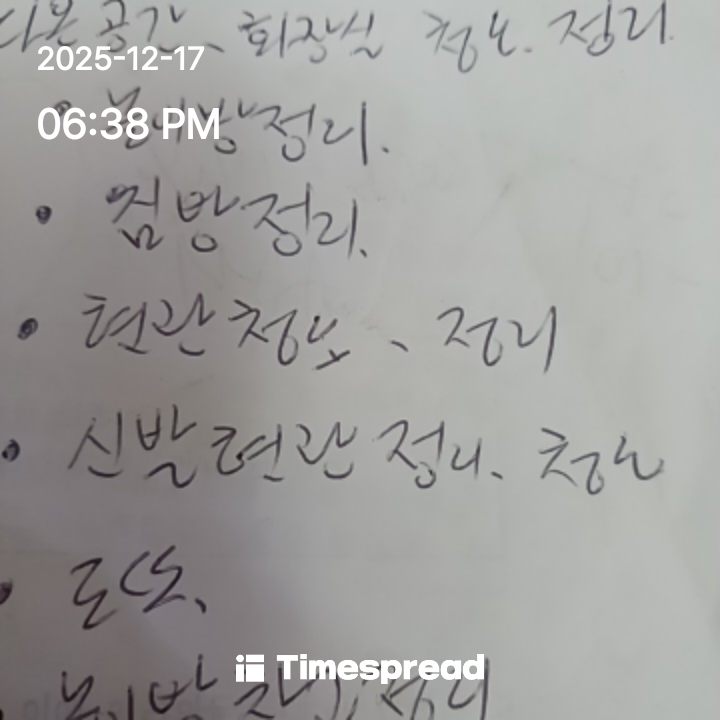 다온공간、화장실 청소. 정리.
2025-12-17
06:38 PM
정리.
• 짐방정리.
• 현관청소、정리
• 신발현관정리、청소
• 로또、
Timespread